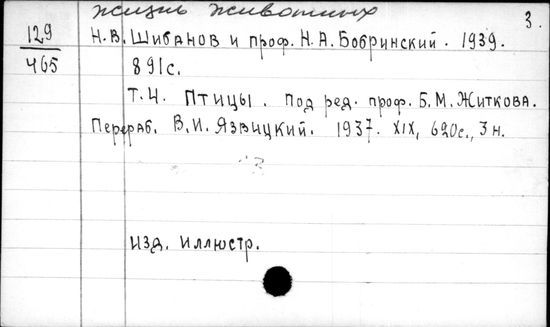 Жизнь животных
3.
129
465
Н.В. Шибанов и проф. Н.А. Бобринский. 1939.
891с.
Т.4. Птицы. Под ред. проф. Б.М. Житкова.
Перераб. В.И. Язвицкий. 1937. XIX, 620с., 3н.
изд. иллюстр.